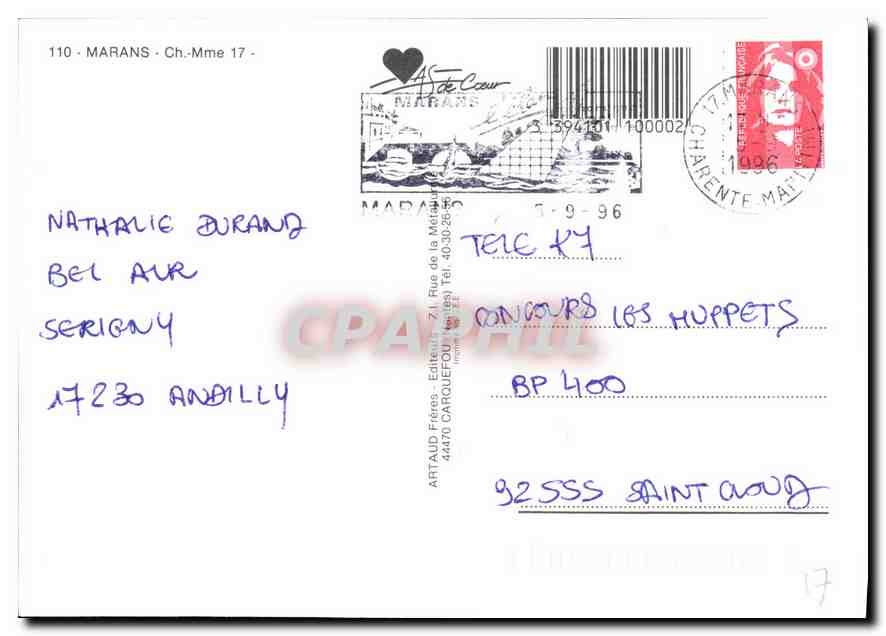 110 - MARANS - Ch.-Mme 17 -
AS de Cœur
MARANS
3 394101 100002
REPUBLIQUE FRANÇAISE
LA POSTE
17.MARANS
1996
CHARENTE-MARITIME
MARANS
5-9-96
NATHALIE DURAND
BEL AIR
SERIGNY
17230 ANDILLY
ARTAUD Frères - Editeurs - Z.I. Rue de la Métallurgie
44470 CARQUEFOU (Nantes) Tél. 40-30-26-
TELE K7
CONCOURS LES MUPPETS
BP 400
92555 SAINT CLOUD
CPAPHIL
17